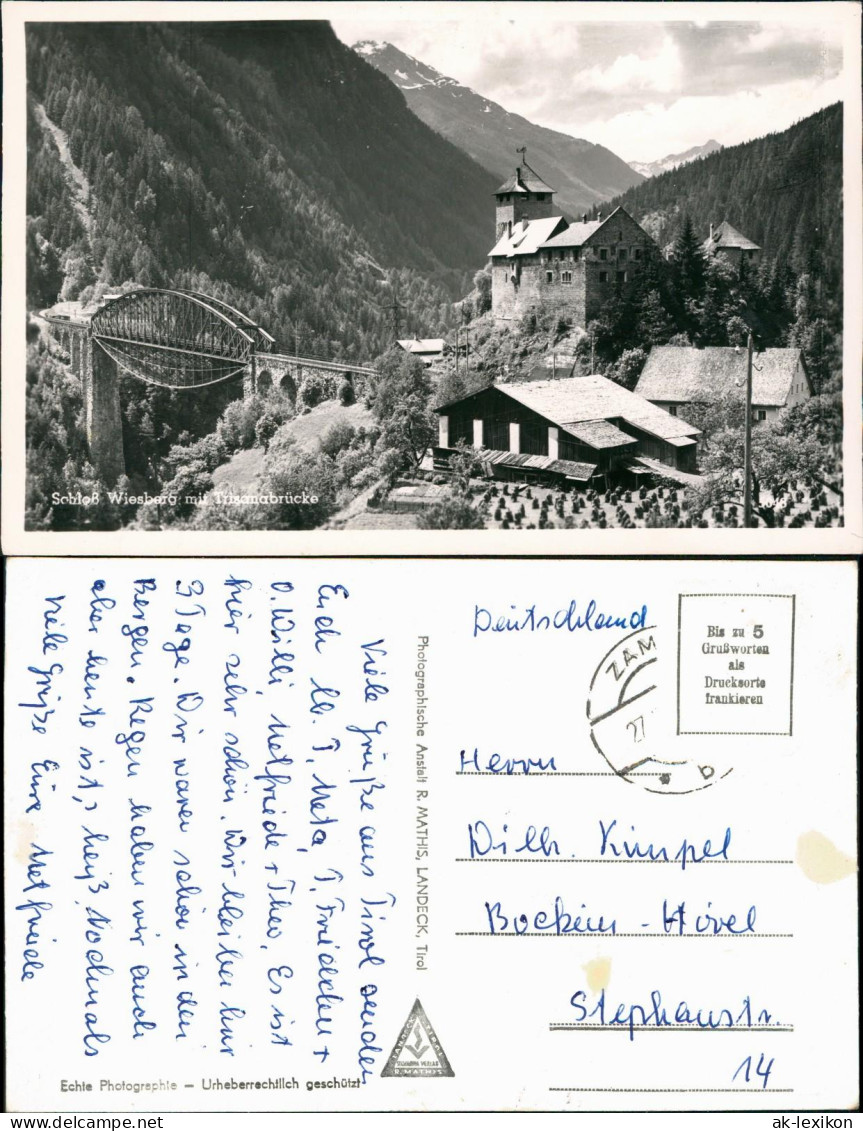 Schloß Wiesberg mit Trisanabrücke
Viele Grüße aus Tirol senden
Euch lb. T. Meta, T. Friedchen +
O. Willi, Metfriede + Theo. Es ist
hier sehr schön. Wir bleiben hier
3 Tage. Wir waren schon in den
Bergen. Regen haben wir auch
aber heute ist's heiß. Nochmals
viele Grüße Eure Metfriede
Photographische Anstalt R. MATHIS, LANDECK, Tirol
Echte Photographie — Urheberrechtlich geschützt
R. MATHIS
Deutschland
ZAM
27.
b
Bis zu 5
Grußworten
als
Drucksorte
frankieren
Herrn
Wilh. Kümpel
Bockum-Hövel
Stephanstr.
14
www.delcampe.net
ak-lexikon